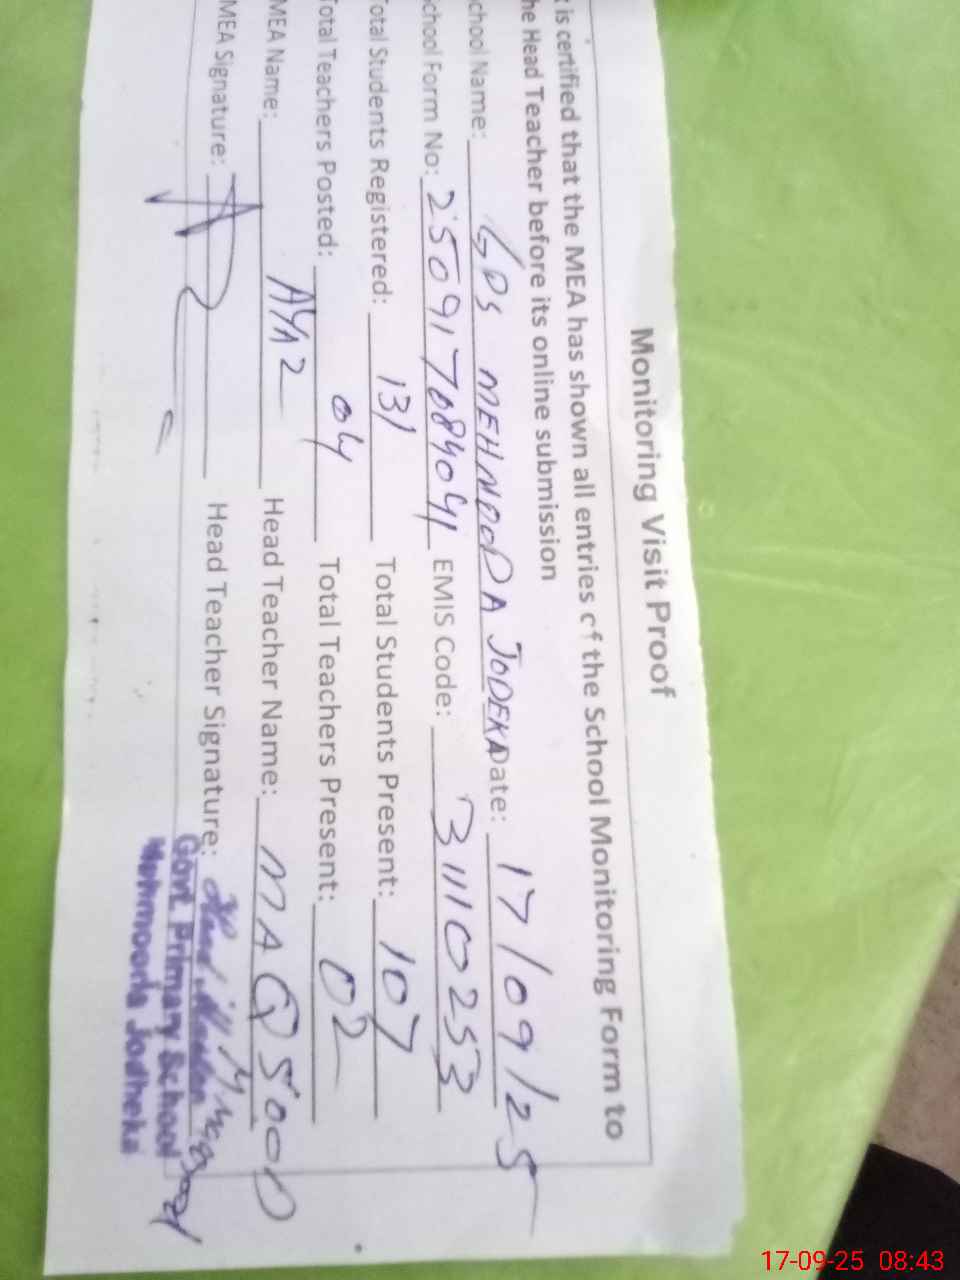 Monitoring Visit Proof
t is certified that the MEA has shown all entries of the School Monitoring Form to
he Head Teacher before its online submission
chool Name: GPS MEHMOODA JODEKA Date: 17/09/25
chool Form No: 250917084041 EMIS Code: 31110253
otal Students Registered: 131 Total Students Present: 107
Total Teachers Posted: 04 Total Teachers Present: 02
MEA Name: AYAZ Head Teacher Name: MAQSOOD
MEA Signature: Head Teacher Signature:
Govt. Primary School
Mehmooda Jodheka
17-09-25 08:43